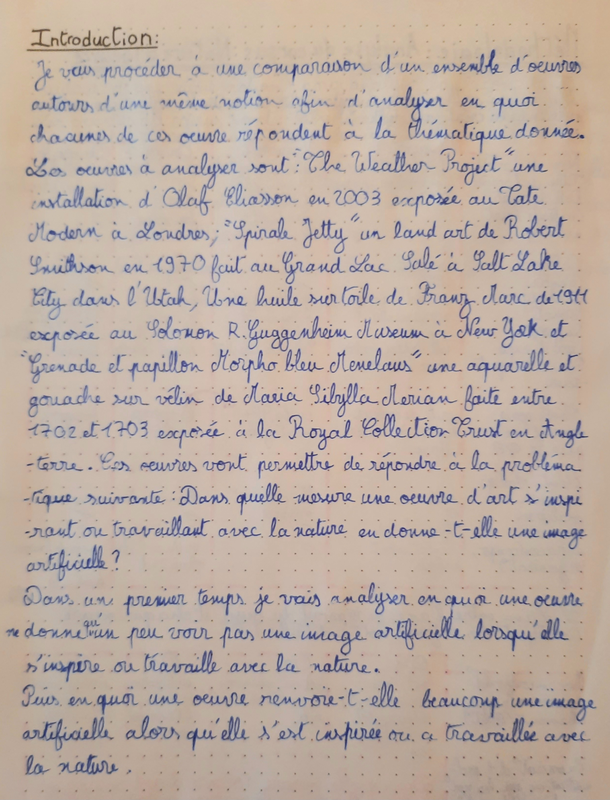 Introduction:
Je vais procéder à une comparaison d'un ensemble d'oeuvres
autours d'une même notion afin d'analyser en quoi
chacunes de ces oeuvre répondent à la thématique donnée.
Les oeuvres à analyser sont : "The Weather Project" une
installation d'Olaf Eliasson en 2003 exposée au Tate
Modern à Londres, "Spirale Jetty" un land art de Robert
Smithson en 1970 fait au Grand Lac Salé à Salt Lake
City dans l'Utah, Une huile sur toile de Franz Marc de 1911
exposée au Solomon R. Guggenheim Museum à New York et
"Grenade et papillon Morpho bleu Menelaus" une aquarelle et
gouache sur vélin de Maria Sibylla Merian faite entre
1702 et 1703 exposée à la Royal Collection Trust en Angle
-terre. Ces oeuvres vont permettre de répondre à la probléma
-tique suivante : Dans quelle mesure une oeuvre d'art s'inspi
-rant ou travaillant avec la nature en donne-t-elle une image
artificielle ?
Dans un premier temps je vais analyser en quoi une oeuvre
ne donne qu'un peu voir pas une image artificielle lorsqu'elle
s'inspire ou travaille avec la nature.
Puis en quoi une oeuvre renvoie-t-elle beaucoup une image
artificielle alors qu'elle s'est inspirée ou a travaillée avec
la nature.